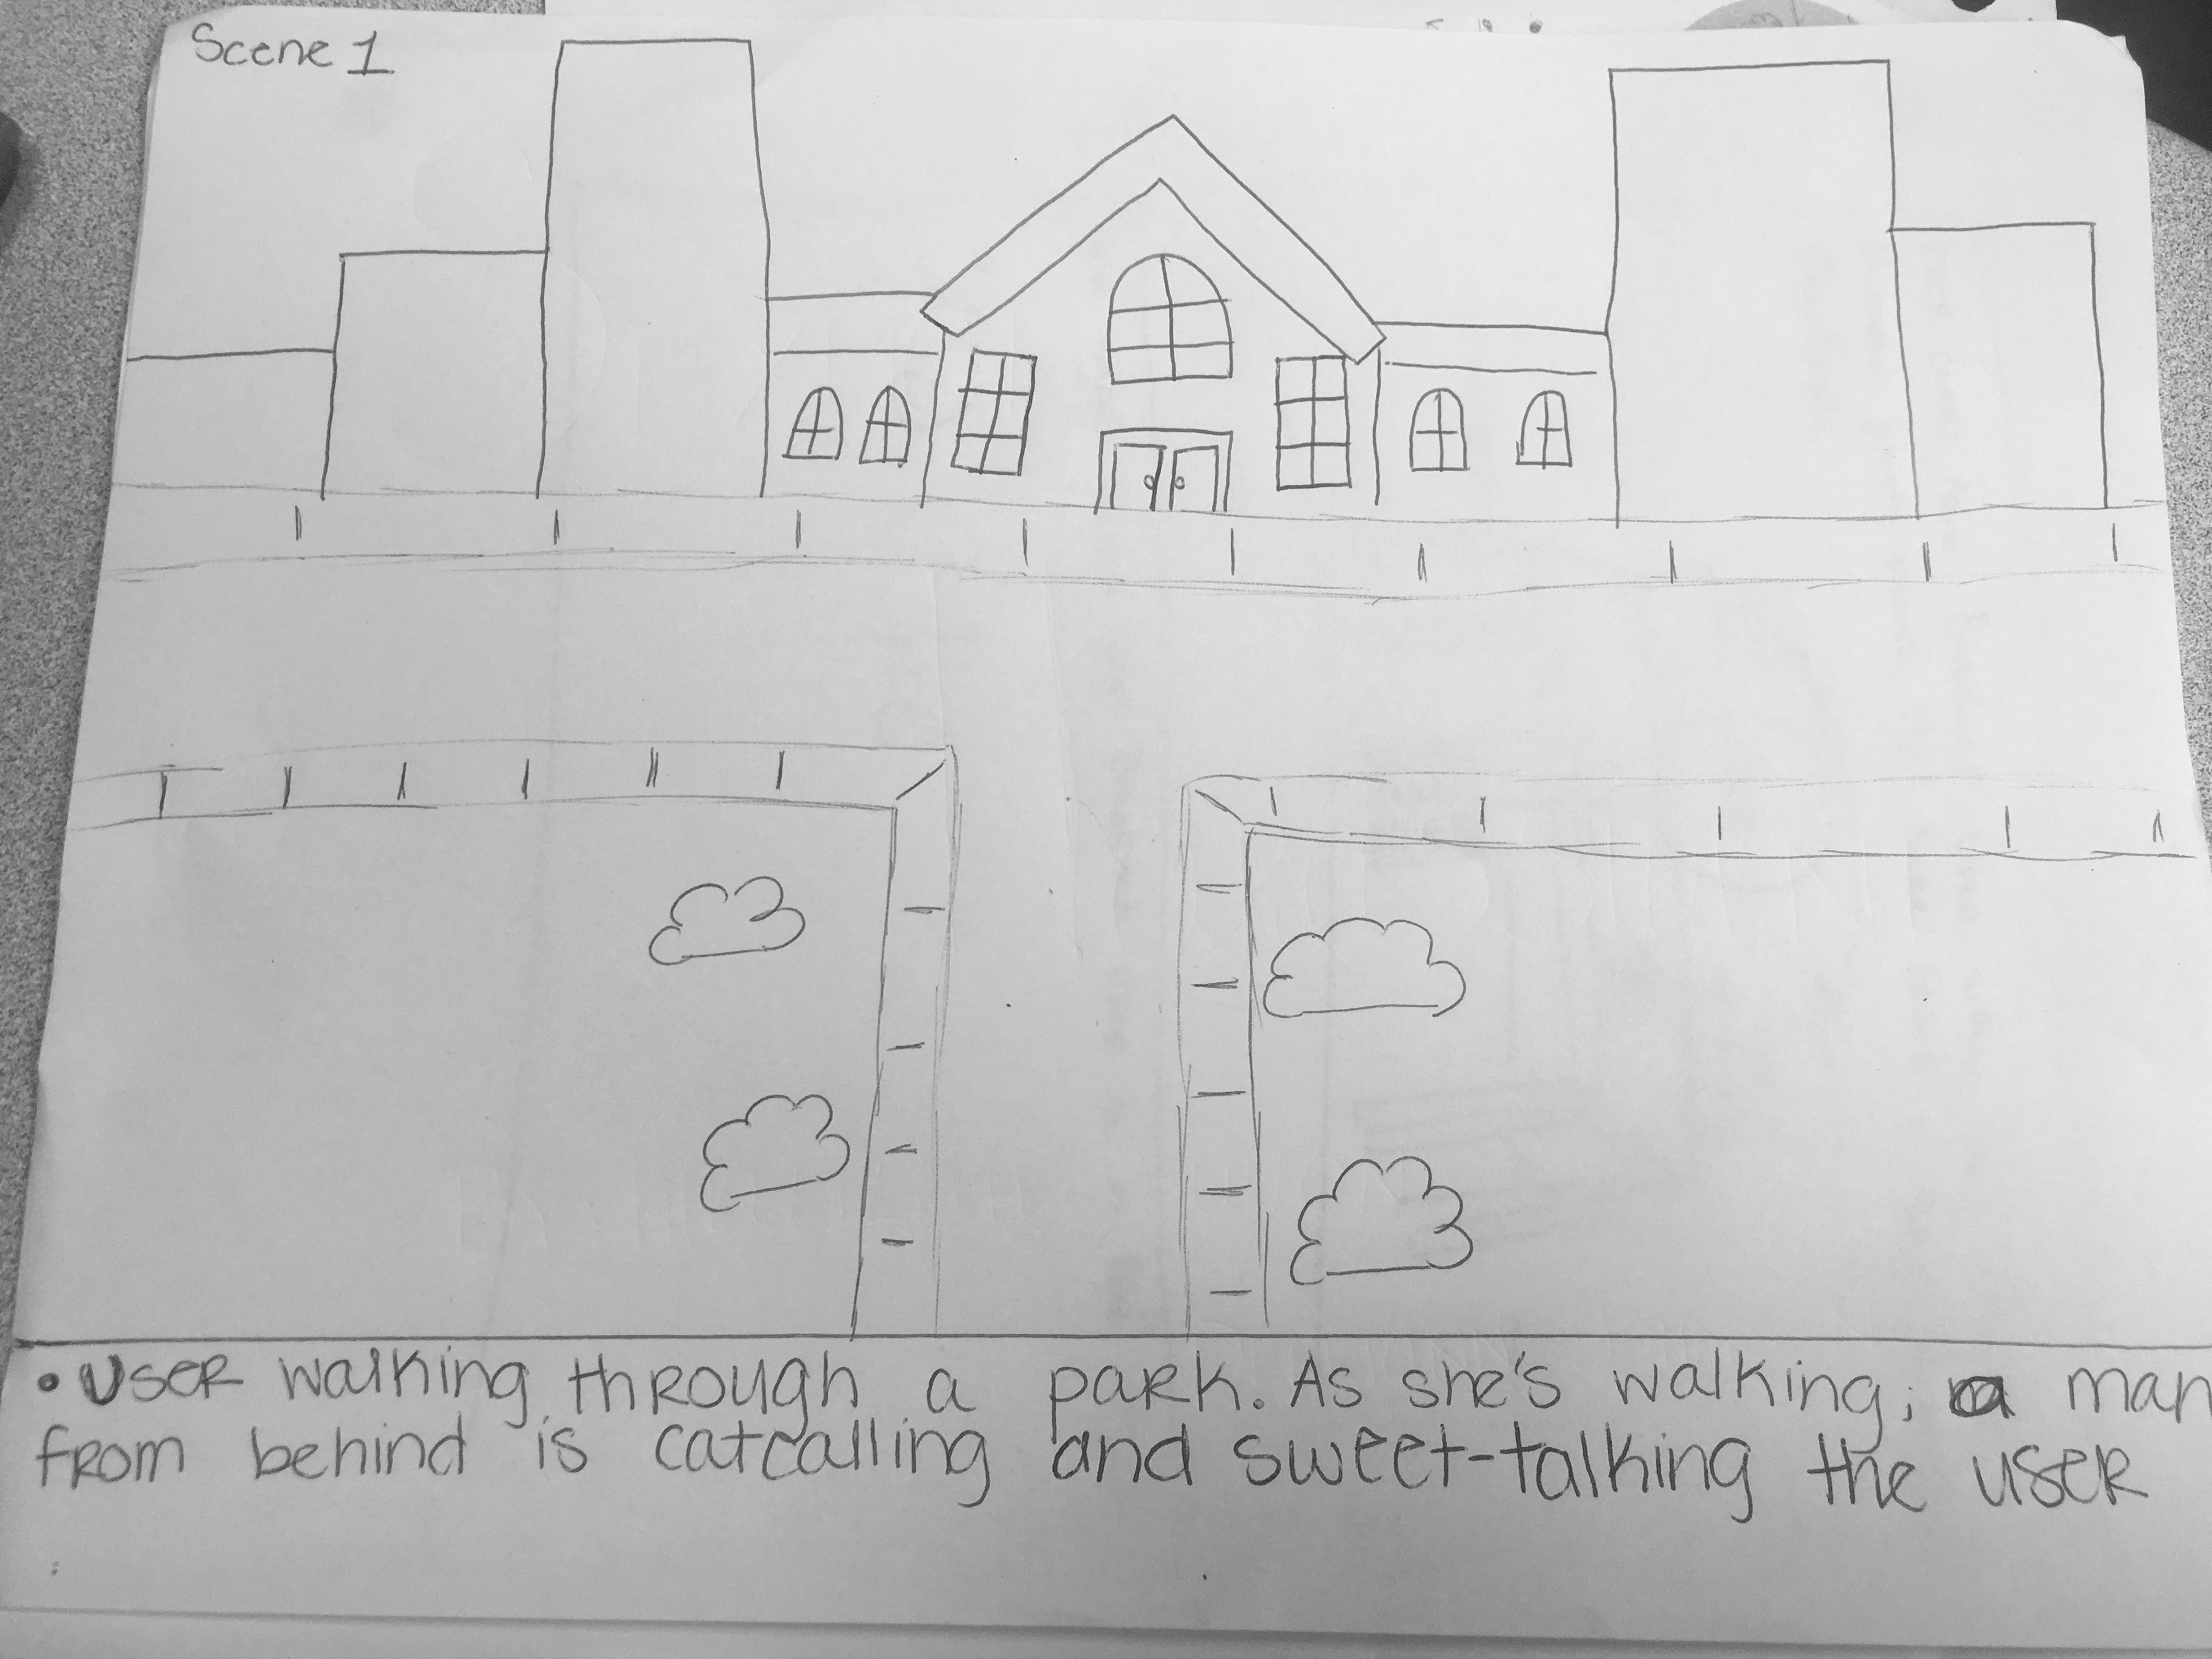 Scene 1
• User walking through a park. As she's walking, a man
from behind is catcalling and sweet-talking the user